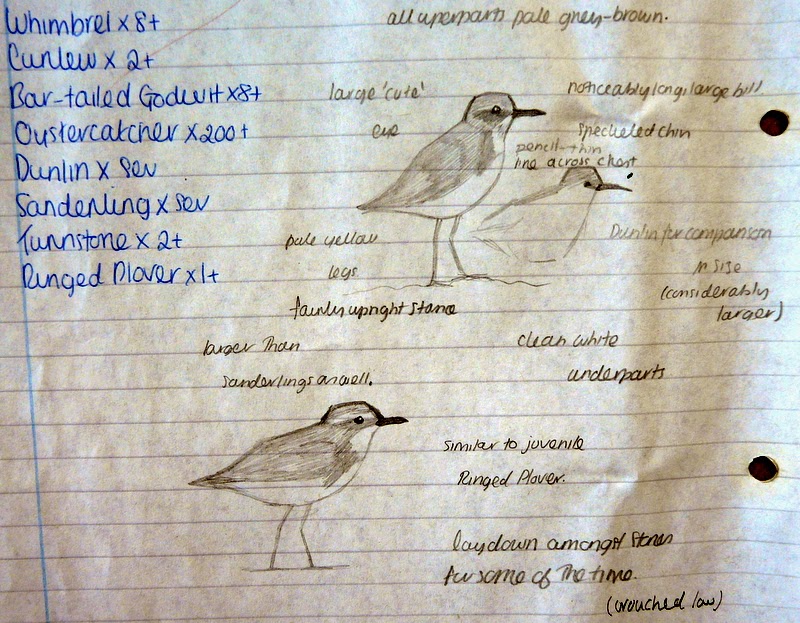 Whimbrel x 8+
Curlew x 2+
Bar-tailed Godwit x8+
Oystercatcher x200+
Dunlin x sev
Sanderling x sev
Turnstone x 2+
Ringed Plover x1+
all upperparts pale grey-brown.
large 'cute'
eye
noticeably long/large bill
speckeled chin
pencil-thin
line across chest
pale yellow
legs
Dunlin for comparison
in size
(considerably
larger)
fairly upright stance
larger than
sanderlings as well.
clean white
underparts
similar to juvenile
Ringed Plover.
laydown amongst stones
for some of the time.
(crouched low)